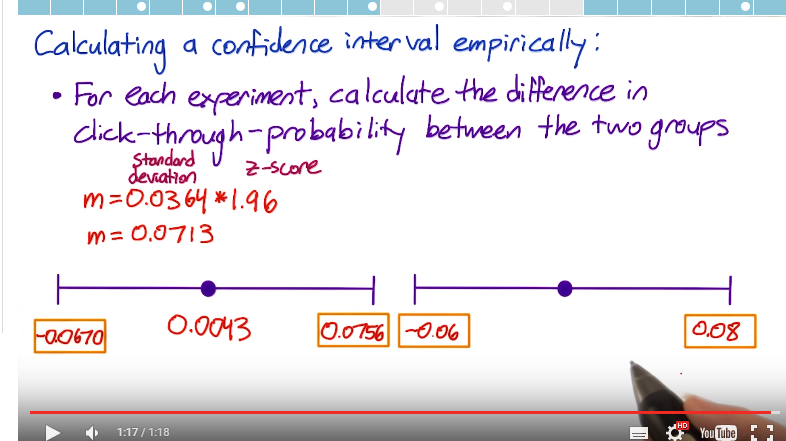 Calculating a confidence interval empirically:
• For each experiment, calculate the difference in
click-through-probability between the two groups
Standard
deviation
z-score
m=0.0364*1.96
m= 0.0713
-0.0670
0.0043
0.0756
-0.06
0.08
1:17 / 1:18
HD
YouTube